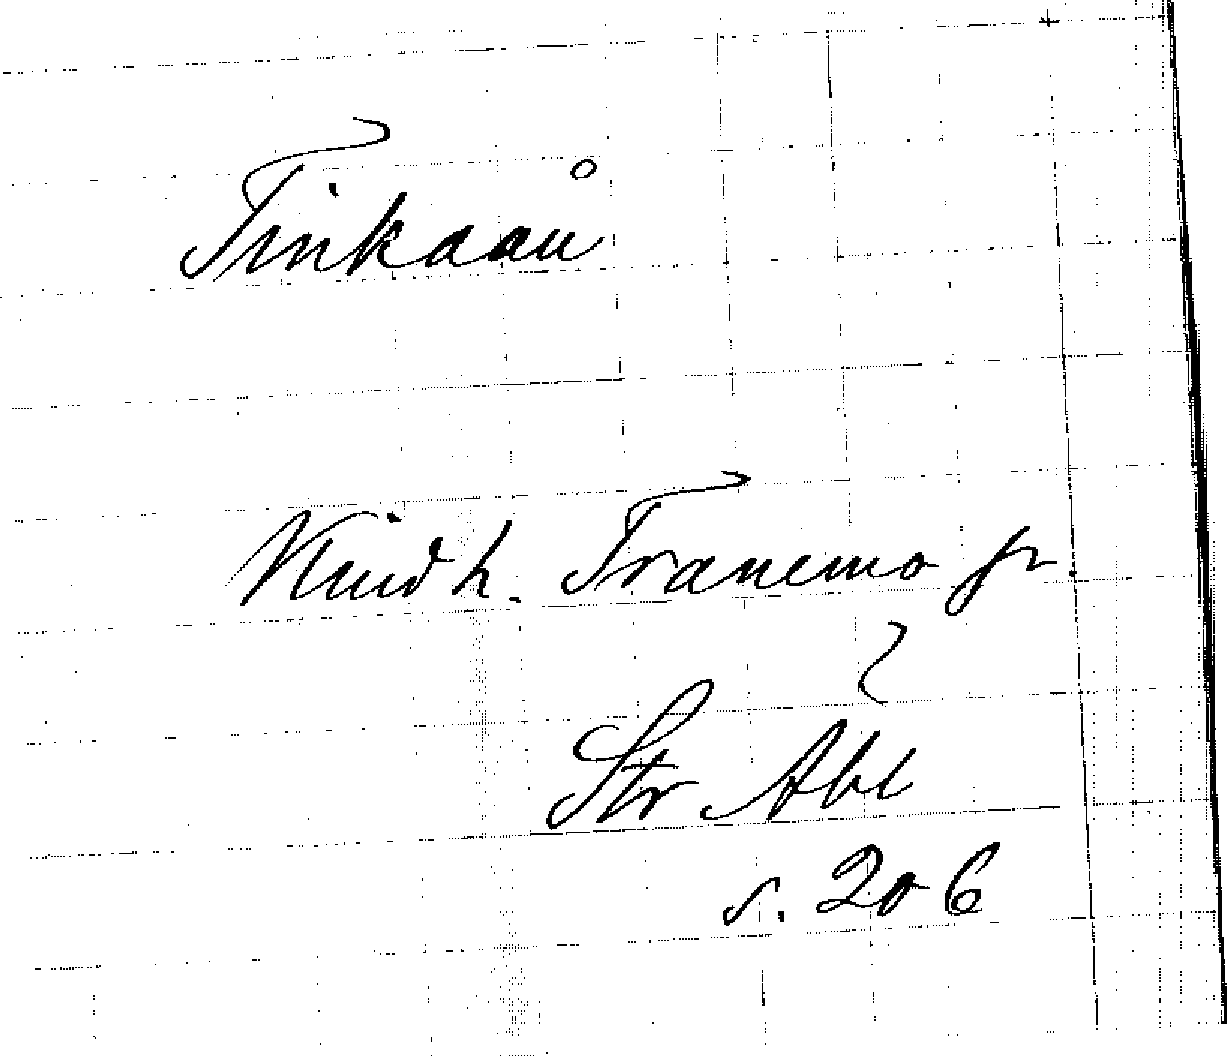 Tinkaån
Kind h. Tranemo sn.
Str Abl
s. 206